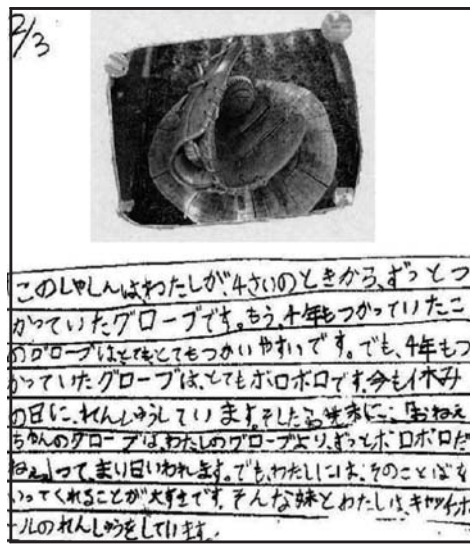 2/3
このしゃしんはわたしが、4さいのときから、ずっとつ
かっていたグローブです。もう、4年もつかっていたこ
のグローブはとてもとてもつかいやすいです。でも、4年もつ
かっていたグローブは、とてもボロボロです。今も休み
の日に、れんしゅうしています。そしたら妹に、「おねえ
ちゃんのグローブは、わたしのグローブより、ずっとボロボロだ
ねぇ。」って、まい日いわれます。でも、わたしには、そのことばを
いってくれることが大すきです。そんな妹とわたしは、キャッチボ
ールのれんしゅうをしています。